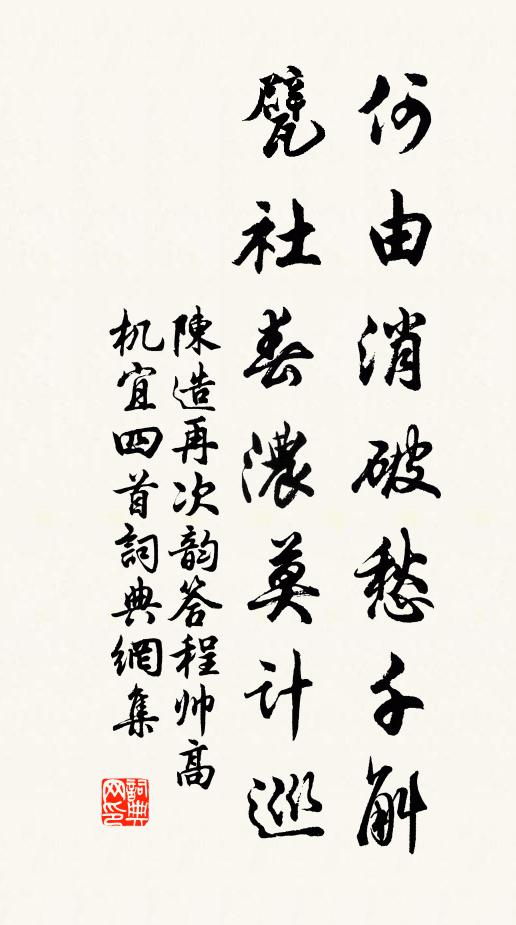 何由消破愁千斛
甓社春濃莫計巡
陳造再次韵答程帅高
机宜四首詞典網集
詞典
网印